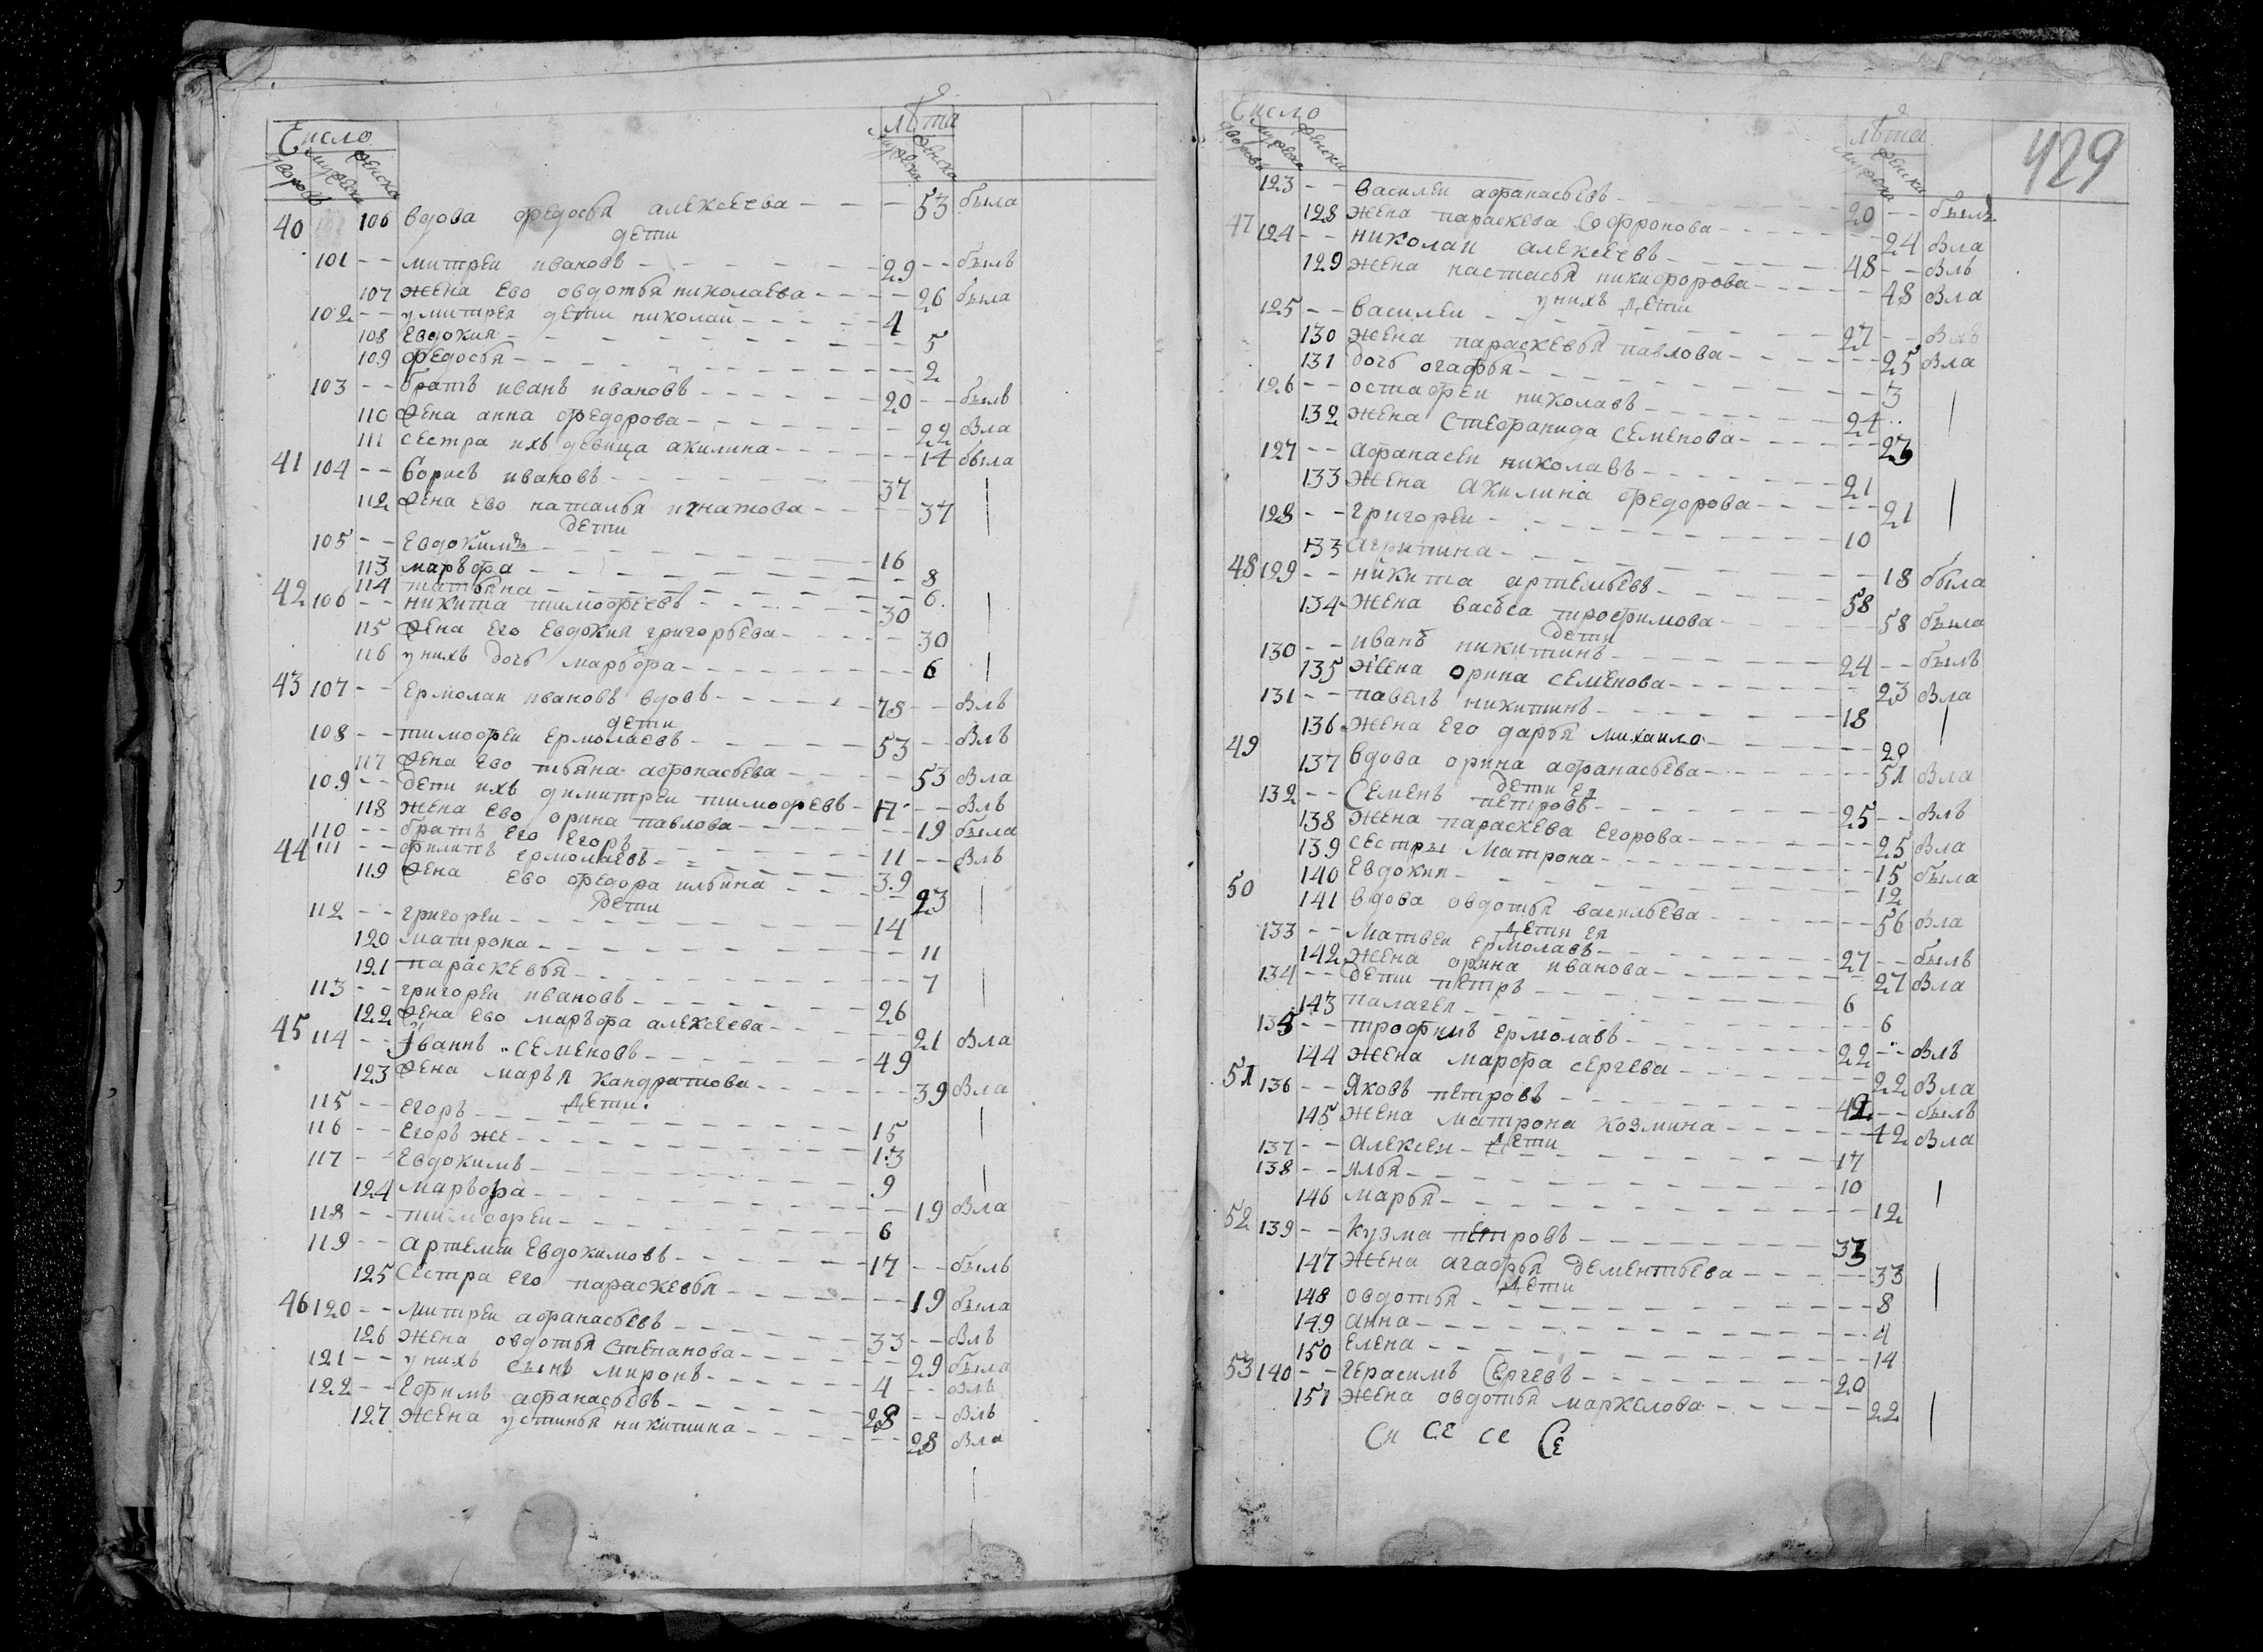 Число лѣта
дворовъ мужеска женска мужеска женска
40 106 вдова федосья алексеева - - - 53 была
дети
101 - - митреи ивановъ - - - 29 - - былъ
107 жена ево овдотья николаева - - - 26 была
102 - - у митрея дети николаи - - - 4
108 Евдокия - - - 5
109 федосья - - - 2
103 - - братъ иванъ ивановъ - - - 20 - - былъ
110 жена анна федорова - - - 22 бла
111 сестра ихъ девица акилина - - - 14 была
41 104 - - борисъ ивановъ - - - 37
112 жена ево наталья игнатова - - - 37
дети
105 - - Евдокимъ - - - 16
113 марѣфа - - - 8
114 татьяна - - - 6
42 106 - - никита тимофеевъ - - - 30
115 жена его Евдокия григорьева - - - 30
116 у нихъ дочь марѣфа - - - 6
43 107 - - Ермолаи ивановъ вдовъ - - - 78 - - блъ
дети
108 - - тимофеи Ермолаевъ - - - 53 - - блъ
117 жена ево тьяна афонасьева - - - 53 бла
109 - - дети ихъ димитреи тимофевъ - 17 - - блъ
118 жена ево орина павлова - - - 19 была
110 - - братъ его Егоръ - - - 11 - - блъ
44 111 - - филипъ Ермолаевъ - - - 39
119 жена ево федора ильина - - - 23
дети
112 - - григореи - - - 14
120 матрона - - - 11
121 параскевья - - - 7
113 - - григореи ивановъ - - - 26
122 жена ево марѣфа алексеева - - - 21 бла
45 114 - - Iваннъ семеновъ - - - 49
123 жена марья кандратиова - - - 39 бла
дети
115 - - Егоръ - - - 15
116 - - Егоръ же - - - 13
117 - - Евдокимъ - - - 9
124 марѣфа - - - 19 бла
118 - - тимофеи - - - 6
119 - - артемеи Евдокимовъ - - - 17 - - былъ
125 сестра его параскевья - - - 19 была
46 120 - - митреи афанасьевъ - - - 33 - - блъ
126 жена овдотья степанова - - - 29 была
121 - - у нихъ сынъ миронъ - - - 4 - - блъ
122 - - Ефимъ афанасьевъ - - - 28 - - блъ
127 жена устинья никитина - - - 28 бла
Число лѣта 429
дворовъ мужеска женска мужеска женска
123 - - василеи афанасьевъ - - - 20 - - былъ
128 жена параскева софронова - - - 24 бла
47 124 - - николаи алексеевъ - - - 48 - - блъ
129 жена настасья никифорова - - - 48 бла
у нихъ дети
125 - - василеи - - - 27 - - блъ
130 жена параскевья павлова - - - 25 бла
131 дочь огафья - - - 3
126 - - остафеи николавъ - - - 24
132 жена стефанида семенова - - - 23
127 - - афанасеи николавъ - - - 21
133 жена акилина федорова - - - 21
128 - - григореи - - - 10
133 агрипина - - - 18 была
48 129 - - никита артемьевъ - - - 58
134 жена васѣса трофимова - - - 58 была
дети
130 - - иванъ никитинъ - - - 24 - - былъ
135 жена орина семенова - - - 23 бла
131 - - павелъ никитинъ - - - 18
136 жена его дарья михаило - - - 20
49 137 вдова орина афанасьева - - - 51 бла
дети ея
132 - - Семенъ петровъ - - - 25 - - блъ
138 жена параскева Егорова - - - 25 бла
139 сестры матрона - - - 15 была
140 Евдокия - - - 12
50 141 вдова овдотья васильева - - - 56 бла
дети ея
133 - - Матвеи Ермолавъ - - - 27 - - былъ
142 жена орина иванова - - - 27 бла
134 - - дети петръ - - - 6
143 палагея - - - 6
135 - - трофимъ Ермолавъ - - - 22 - - блъ
144 жена марфа сергева - - - 22 бла
51 136 - - Яковъ петровъ - - - 42 - - былъ
145 жена матрона козмина - - - 42 бла
дети
137 - - алексеи - - - 17
138 - - илья - - - 10
146 марья - - - 12
52 139 - - кузма петровъ - - - 33
147 жена агафья дементьева - - - 33
дети
148 овдотья - - - 8
149 анна - - - 4
150 Елена - - - 14
53 140 - - герасимъ Сергевъ - - - 20
151 жена овдотья маркелова - - - 22
Ся се се Се